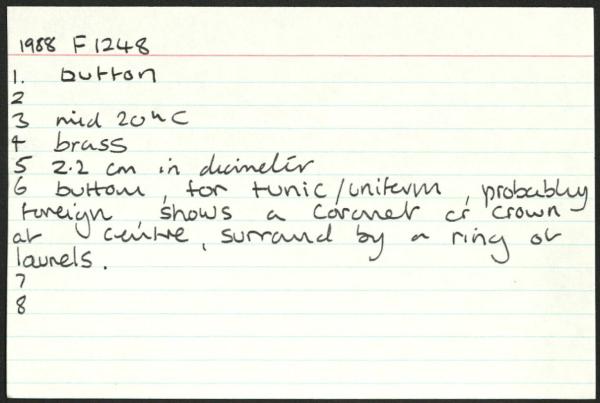 1988 F1248
1. button
2
3 mid 20th C
4 brass
5 2.2 cm in diameter
6 button, for tunic/uniform, probably
foreign, shows a coronet or crown
at centre, surround by a ring of
laurels.
7
8